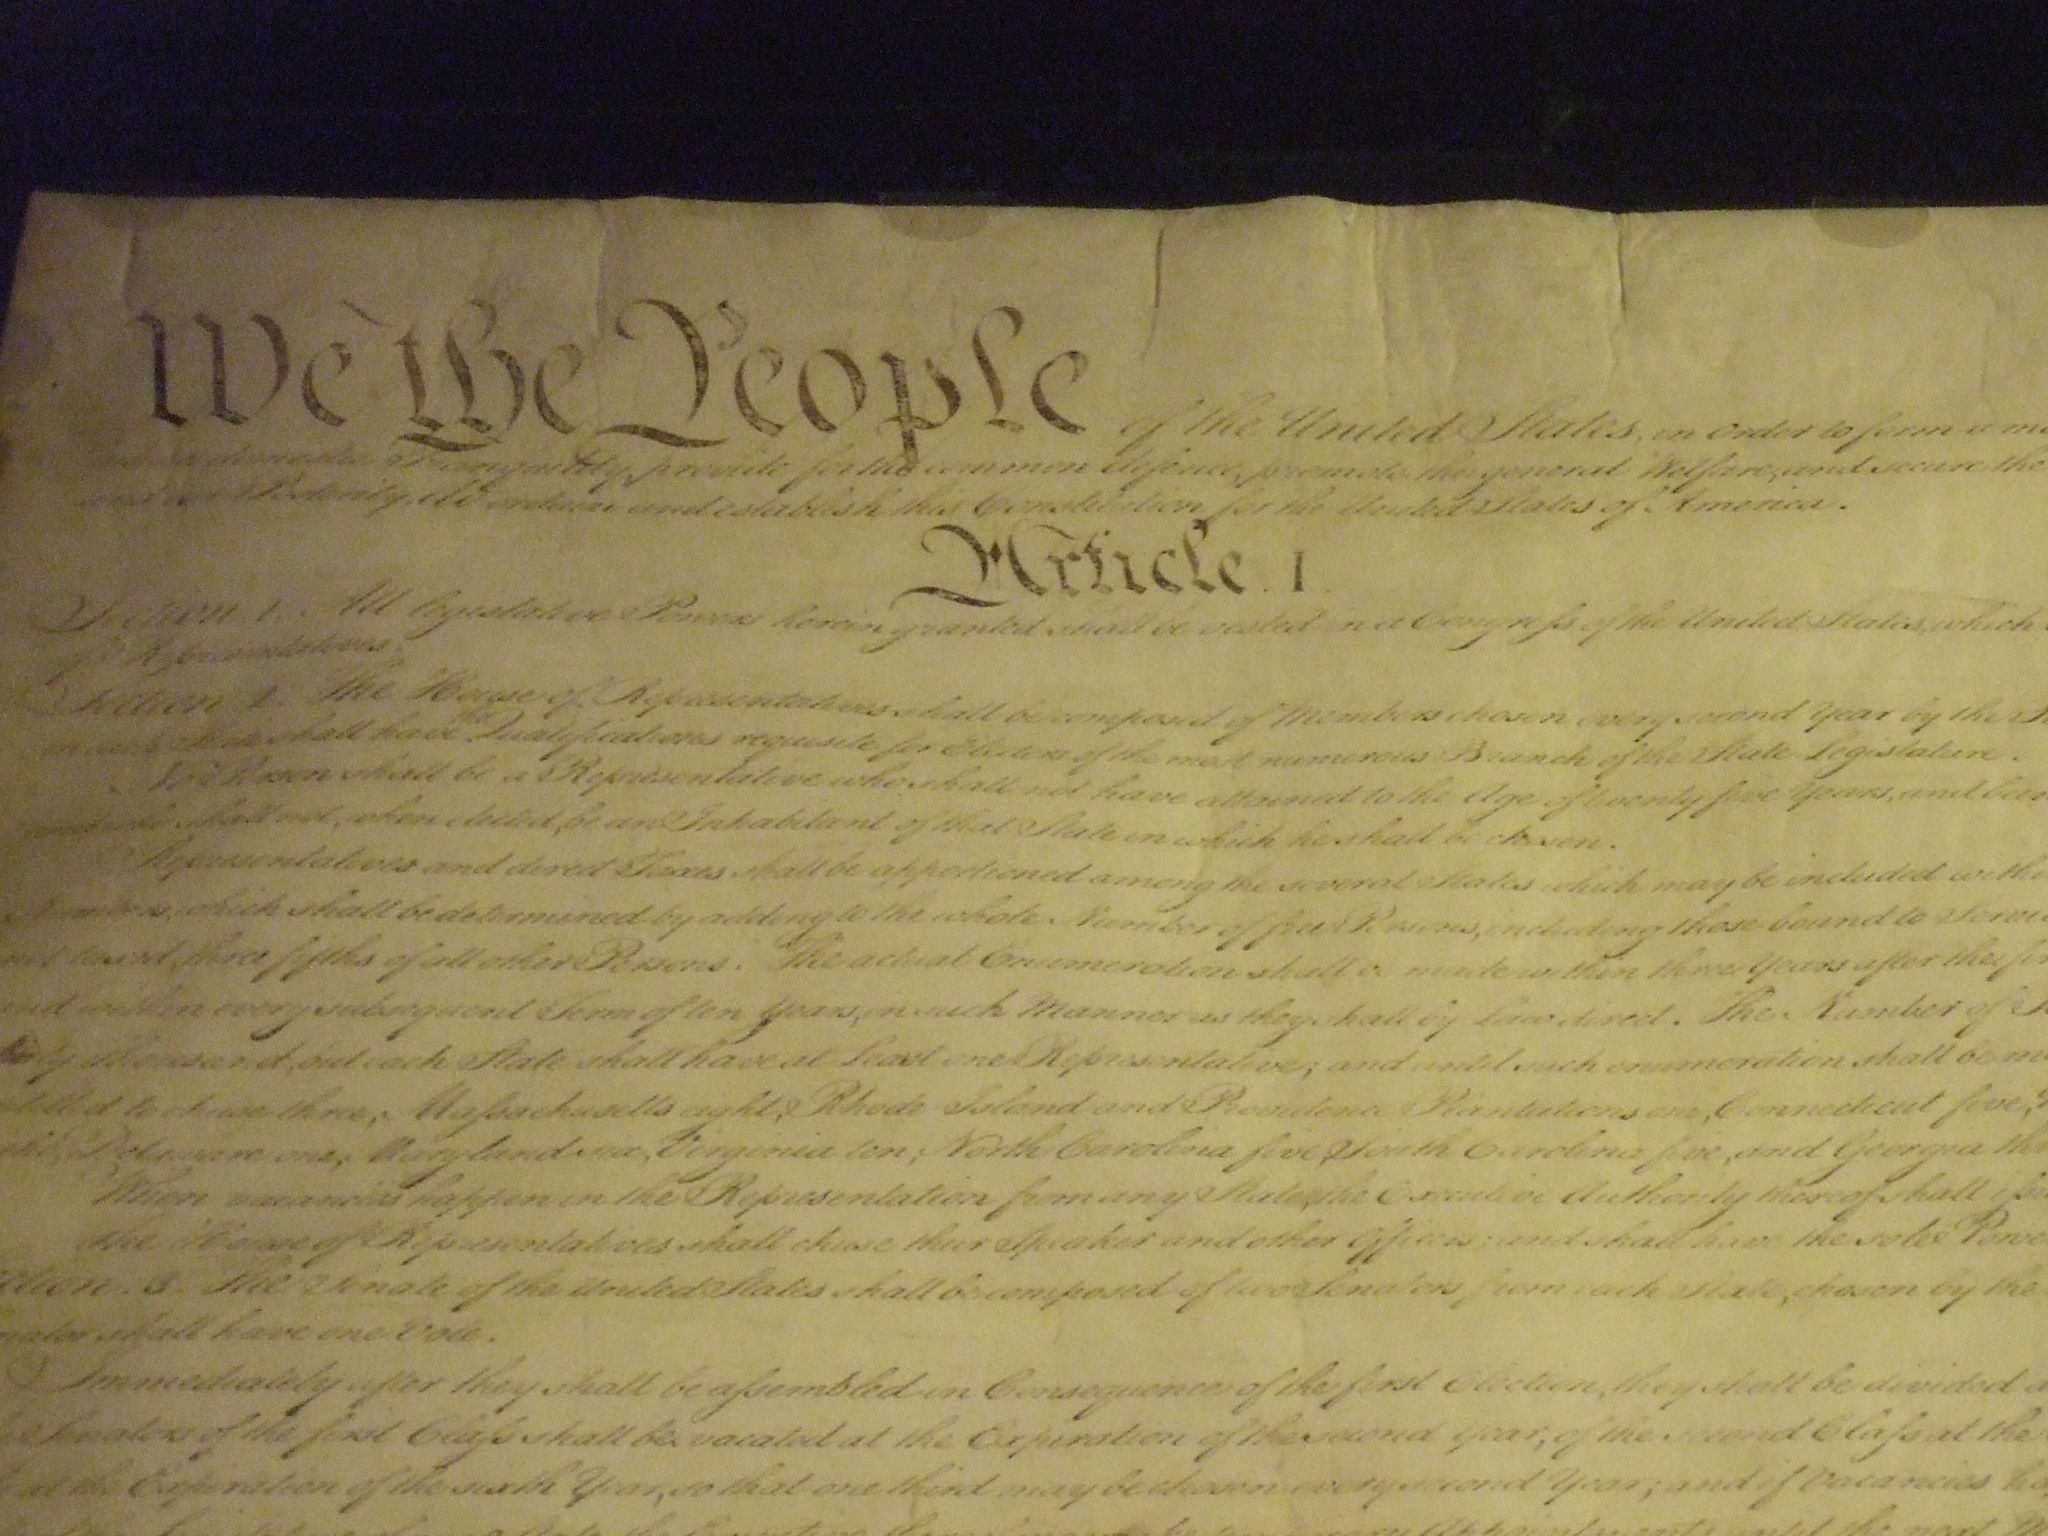 We the People of the United States, in Order to form a
domestic Tranquility, provide for the common defence, promote the general Welfare, and secure the
and our Posterity, do ordain and establish this Constitution for the United States of America.
Article. I.
Section. 1. All legislative Powers herein granted shall be vested in a Congress of the United States, which
of Representatives.
Section. 2. The House of Representatives shall be composed of Members chosen every second Year by the
in each State shall have the Qualifications requisite for Electors of the most numerous Branch of the State Legislature.
No Person shall be a Representative who shall not have attained to the Age of twenty five Years, and been
and who shall not, when elected, be an Inhabitant of that State in which he shall be chosen.
Representatives and direct Taxes shall be apportioned among the several States which may be included within
Numbers, which shall be determined by adding to the whole Number of free Persons, including those bound to Service
not taxed, three fifths of all other Persons. The actual Enumeration shall be made within three Years after the
and within every subsequent Term of ten Years, in such Manner as they shall by Law direct. The Number of
thirty Thousand, but each State shall have at Least one Representative; and until such enumeration shall be
entitled to chuse three, Massachusetts eight, Rhode Island and Providence Plantations one, Connecticut five,
eight, Delaware one, Maryland six, Virginia ten, North Carolina five, South Carolina five, and Georgia
When vacancies happen in the Representation from any State, the Executive Authority thereof shall issue
The House of Representatives shall chuse their Speaker and other Officers; and shall have the sole Power
Section. 3. The Senate of the United States shall be composed of two Senators from each State, chosen by the
Senator shall have one Vote.
Immediately after they shall be assembled in Consequence of the first Election, they shall be divided
Senators of the first Class shall be vacated at the Expiration of the second Year, of the second Class at the
at the Expiration of the sixth Year, so that one third may be chosen every second Year; and if Vacancies